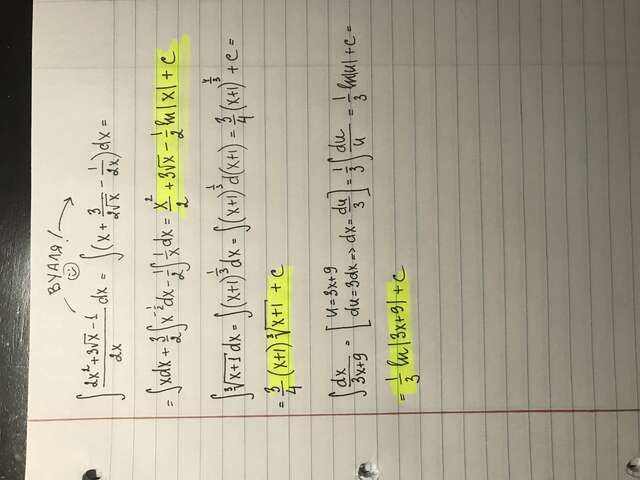 ВУАЛЯ!
∫ (2x² + 3√x - 1)/(2x) dx = ∫(x + 3/(2√x) - 1/(2x))dx =
= ∫xdx + 3/2 ∫x^(-1/2)dx - 1/2 ∫1/x dx = x²/2 + 3√x - 1/2 ln|x| + c
∫∛(x+1) dx = ∫(x+1)^(1/3) dx = ∫(x+1)^(1/3) d(x+1) = 3/4 (x+1)^(4/3) + c =
= 3/4 (x+1) ∛(x+1) + c
∫ dx/(3x+9) = [u = 3x+9 du = 3dx => dx = du/3] = 1/3 ∫ du/u = 1/3 ln|u| + c =
= 1/3 ln|3x+9| + c